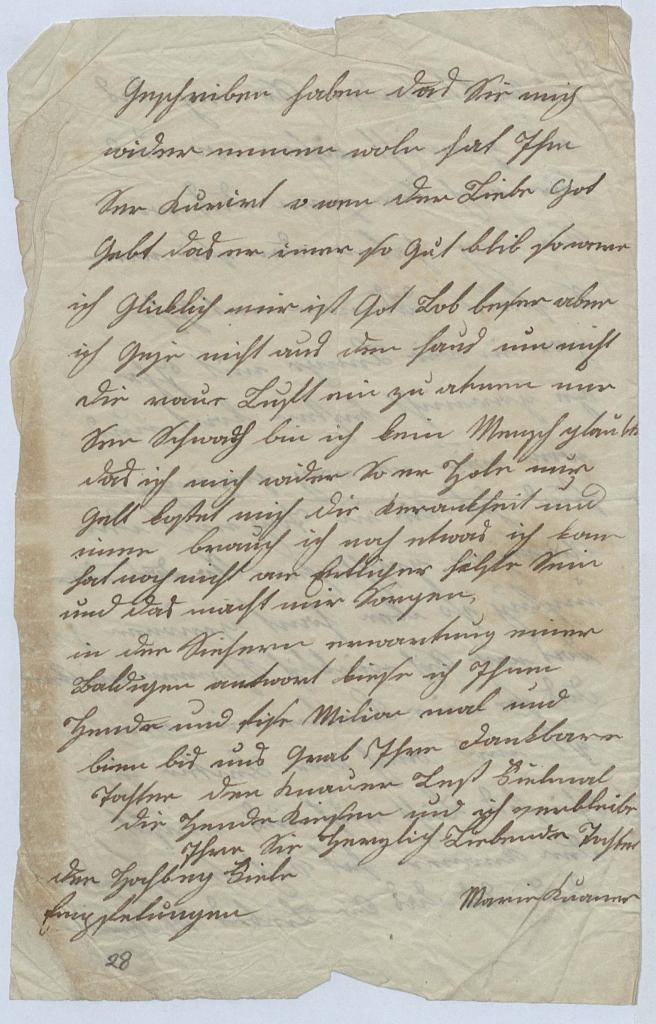 Geschriben haben das Sie mich
wider nemen woln hat Ihn
Ser Kurirt v wen der Liebe Got
Gebt das er imer so Gut blib so were
ich Glicklich mir ist Got Lob beser aber
ich Geje nicht aus den haus um nicht
die raue Luft ein zu atmen nur
Ser Schwach bin ich kein Mensch glaubt
das ich mich wider So er Hole nur
Gelt kostet mich die Kerankheit und
imer brauch ich noch etwas ich kan
hat noch nicht one Ertlicher hilfe Sein
und das macht mir Sorgen,
in der Siesern erwartung einer
Baldigen antwort kiese ich Ihnen
Hende und fise Milion mal und
bien bis uns Grab Ihre dankbare
Tochter der Knauer Lest Vielmal
die Hende Kiesen und ich verbleibe
Ihre Sie Herzlich Liebende Tochter
den Hochberg Viele
Empfelungen
Marie Knauer
28